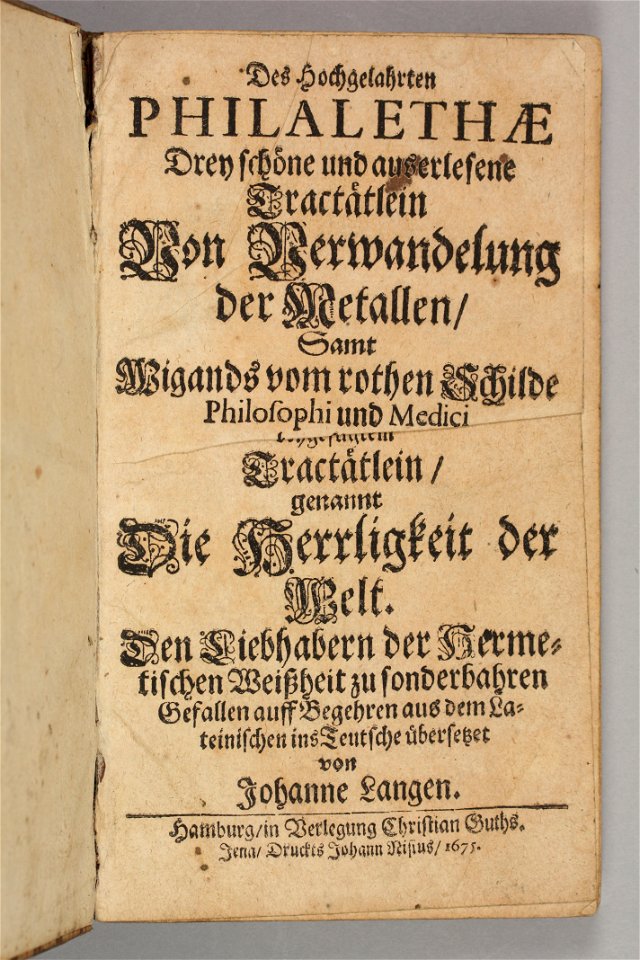 Des Hochgelahrten
PHILALETHÆ
Drey schöne und auserlesene
Tractätlein
Von Verwandelung
der Metallen/
Samt
Wigands vom rothen Schilde
Philosophi und Medici
Tractätlein/
genannt
Die Herrligkeit der
Welt.
Den Liebhabern der Herme-
tischen Weißheit zu sonderbahren
Gefallen auff Begehren aus dem La-
teinischen ins Teutsche übersetzet
von
Johanne Langen.
Hamburg/in Verlegung Christian Guths.
Jena/ Druckts Johann Nisius/ 1675.